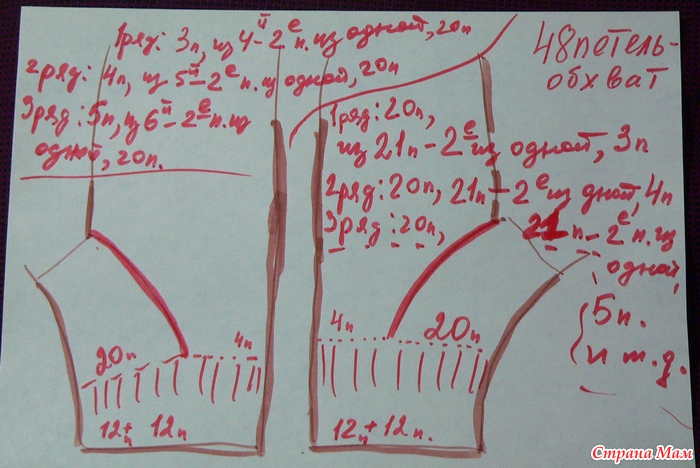 1ряд: 3п, из 4-й 2е п. из одной, 20п
2ряд: 4п, из 5й-2е п. из одной, 20п
3ряд: 5п, из 6й-2е п. из
одной, 20п.
48петель-
обхват
1ряд: 20п,
из 21п-2е из одной, 3п
2ряд: 20п, 21п-2е из дной, 4п
3ряд: 20п, 21п-2е п. из
одной,
5п.
и т.д.
20п 4п
12п + 12п
4п 20п
12п + 12п.
Страна Мам